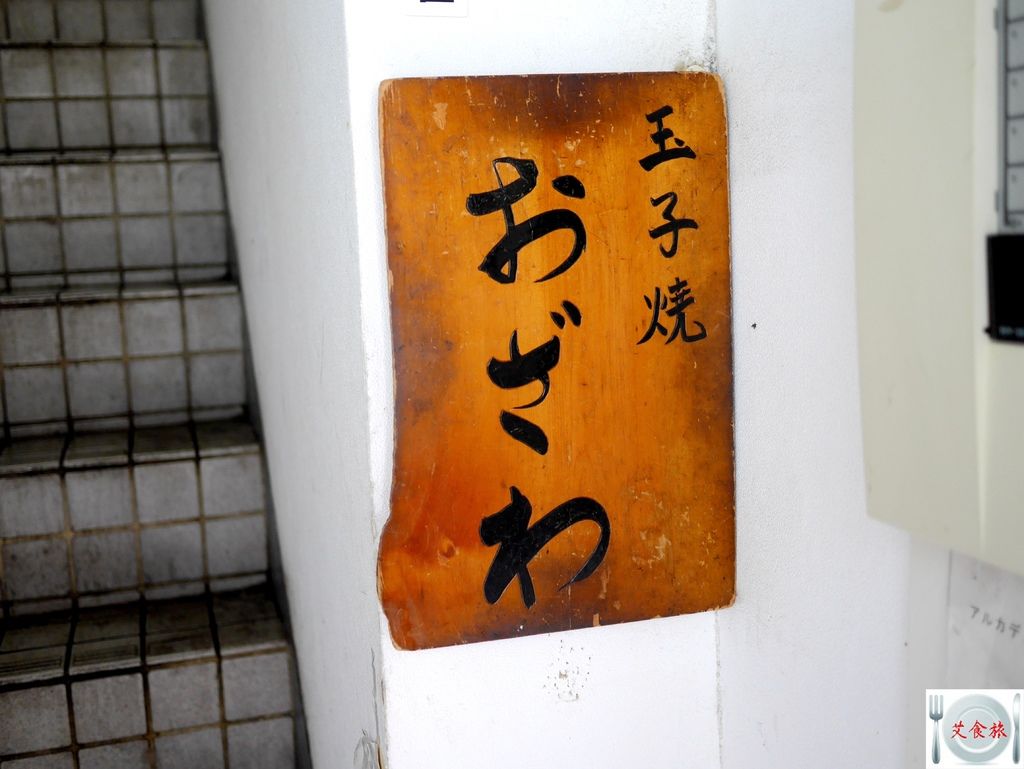 玉子焼
おざわ
アルカデ
艾食旅